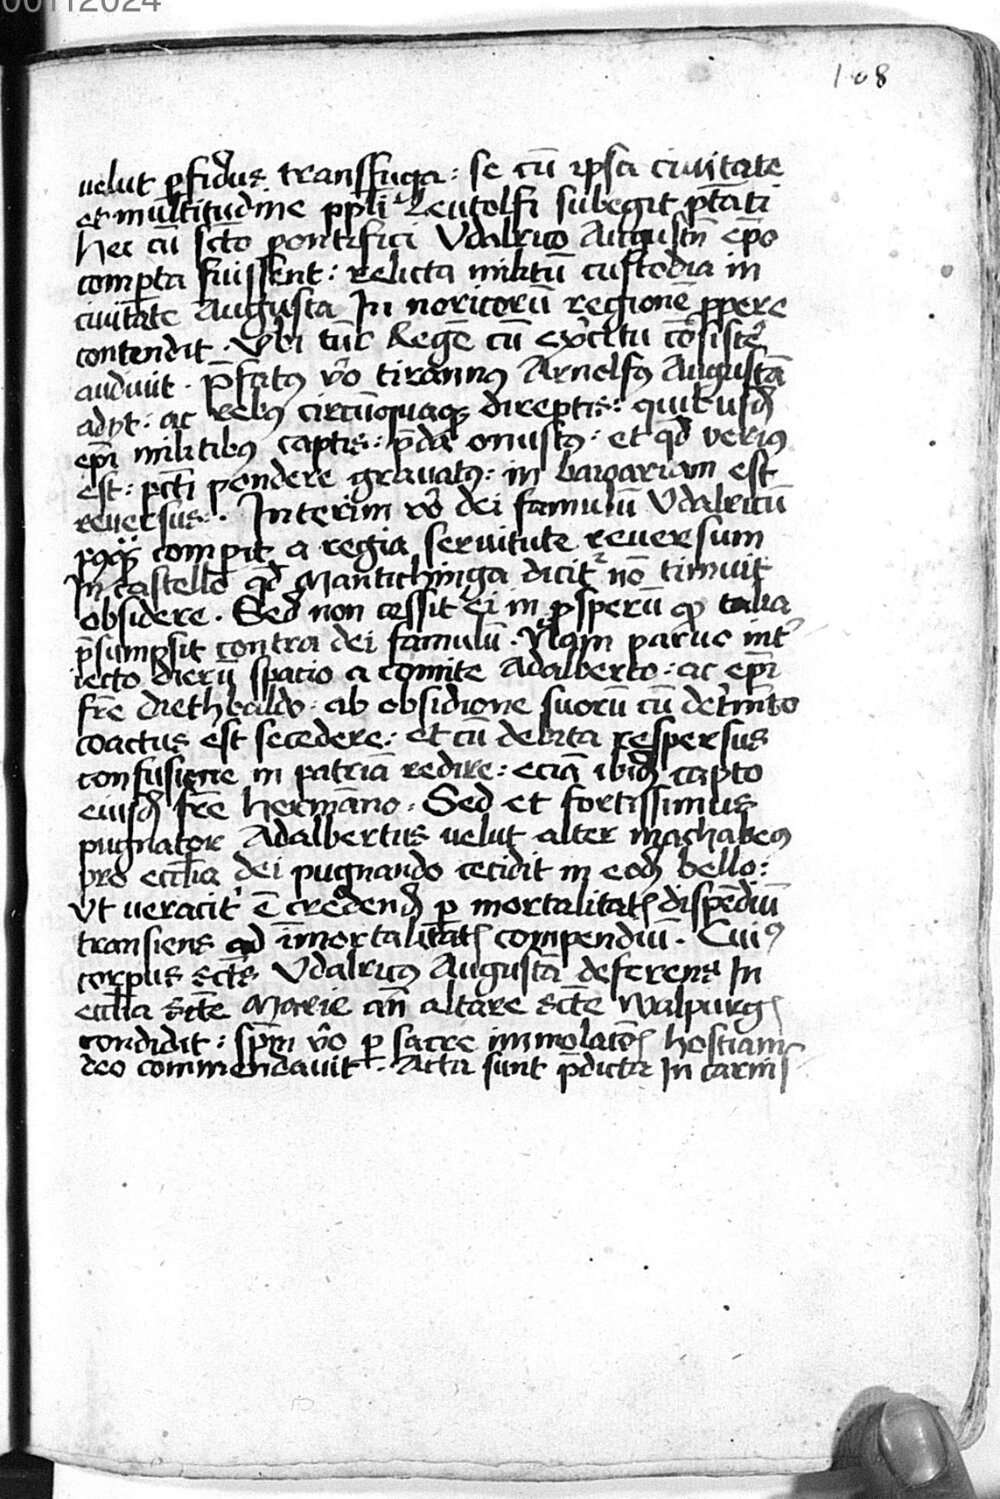 00112024
108
velut ꝑfidus transfuga : se cū ipsa civitate
et multitudine ppli Leutolfi subegit ptāti
Hec cū scto pontifici Vdalrico Augustn̄ epo
compta fuissent : relicta militū custodia in
civitate Augusta In noricorū regionē ꝓpere
contendit . Vbi tūc Regē cū exercitu cōsistere
audivit . Prefatꝰ vo tirannꝰ Arnolfꝰ Augustā
adijt : ac rebꝰ circūquaqꝫ direptis :
epi militibꝰ captis : p̄da onustꝰ : et qd verius
est : pcti pondere gravatꝰ : in bavariam est
reversus : . Interim vo dei famulū Vdalricū
comperit a regia servitute reversum
In castello qd Mantichinga dicitʳ nō timuit
obsidere . Sed non cessit ei in ꝓsperū talia
p̄sumpsit contra dei famulū . Nam parvo inter
iecto dierū spacio a comite Adalberto : ac epi
fre Diethbaldo : ab obsidione suorū cū
coactus est secedere : et cū debita respersus
confusione in patriā redire : eciā ibidē capto
eiusdē fre Hermāno : Sed et fortissimus
pugnator Adalbertus velut alter machabeꝰ
pro ecclia dei pugnando cecidit in eodē bello :
Vt veraciter ē credendū ꝑ mortalitatē dispēdiū
transiens ad īmortalitatē compendiū . Cuiꝰ
corpus scts Vdalricꝰ Augustā deferens In
ecclia scte Marie an̄ altare scte Walpurgē
condidit : spm vo ꝑ sacre immolacōē hostiam
deo commendavit . Acta sunt p̄dicta In carnis